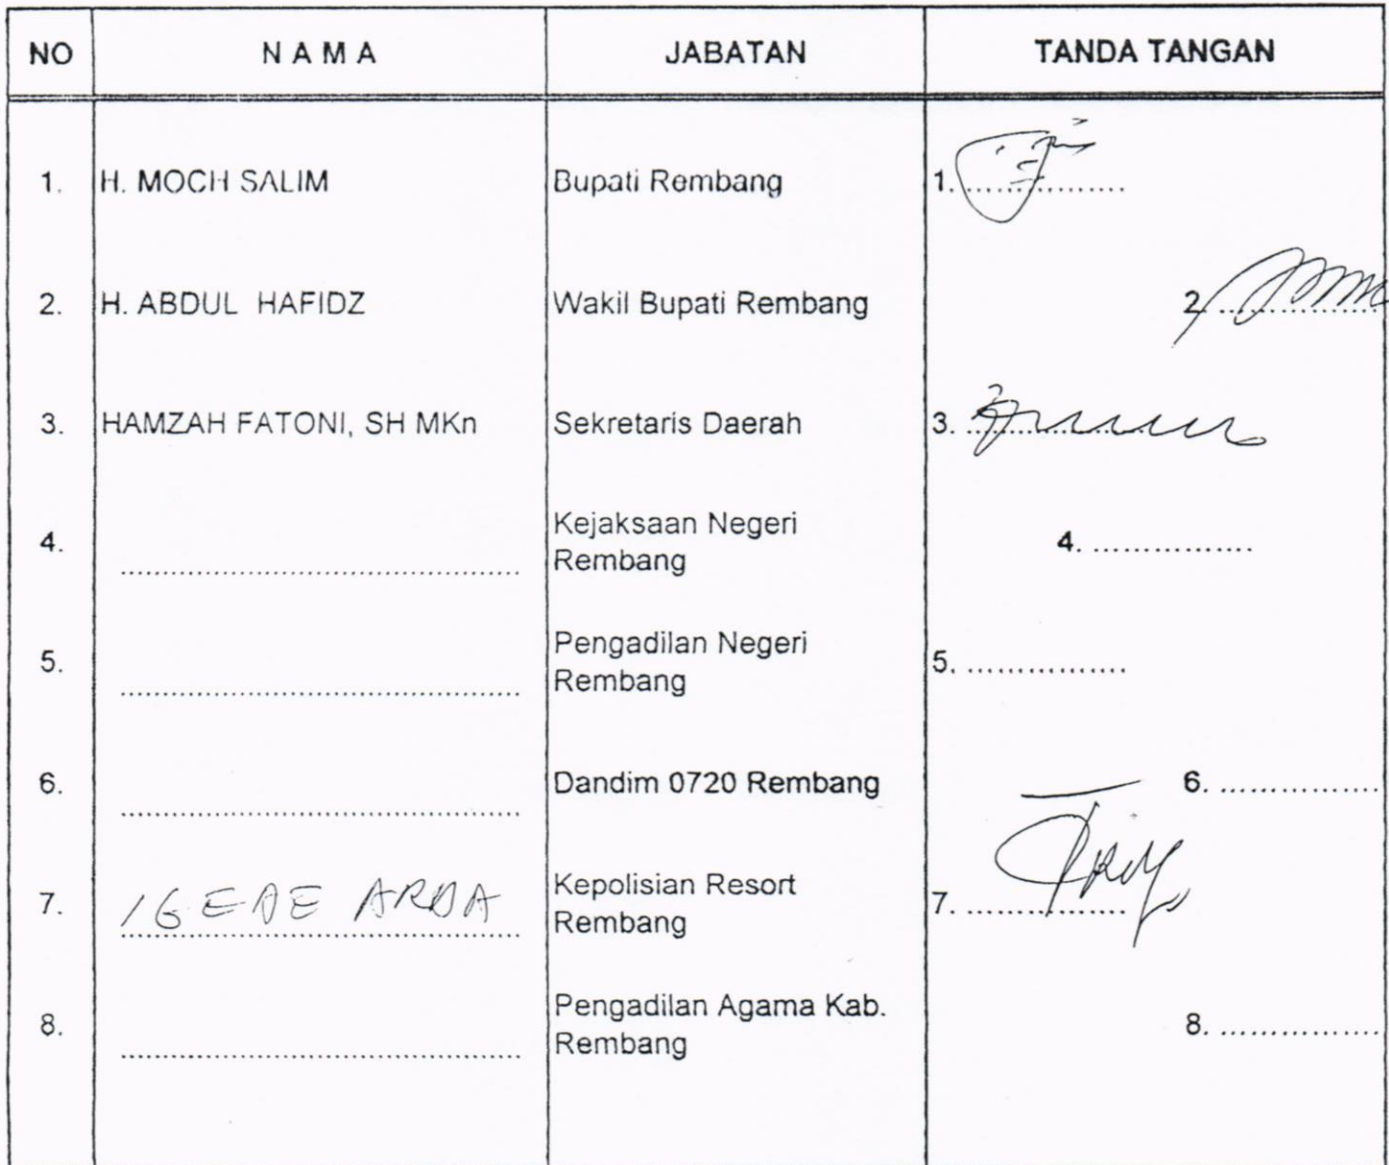 NO N A M A JABATAN TANDA TANGAN
1. H. MOCH SALIM Bupati Rembang 1. ................
2. H. ABDUL HAFIDZ Wakil Bupati Rembang 2. ................
3. HAMZAH FATONI, SH MKn Sekretaris Daerah 3. ................
4. ................ Kejaksaan Negeri
Rembang 4. ................
5. ................ Pengadilan Negeri
Rembang 5. ................
6. ................ Dandim 0720 Rembang 6. ................
7. I GEDE ARDA Kepolisian Resort
Rembang 7. ................
8. ................ Pengadilan Agama Kab.
Rembang 8. ................